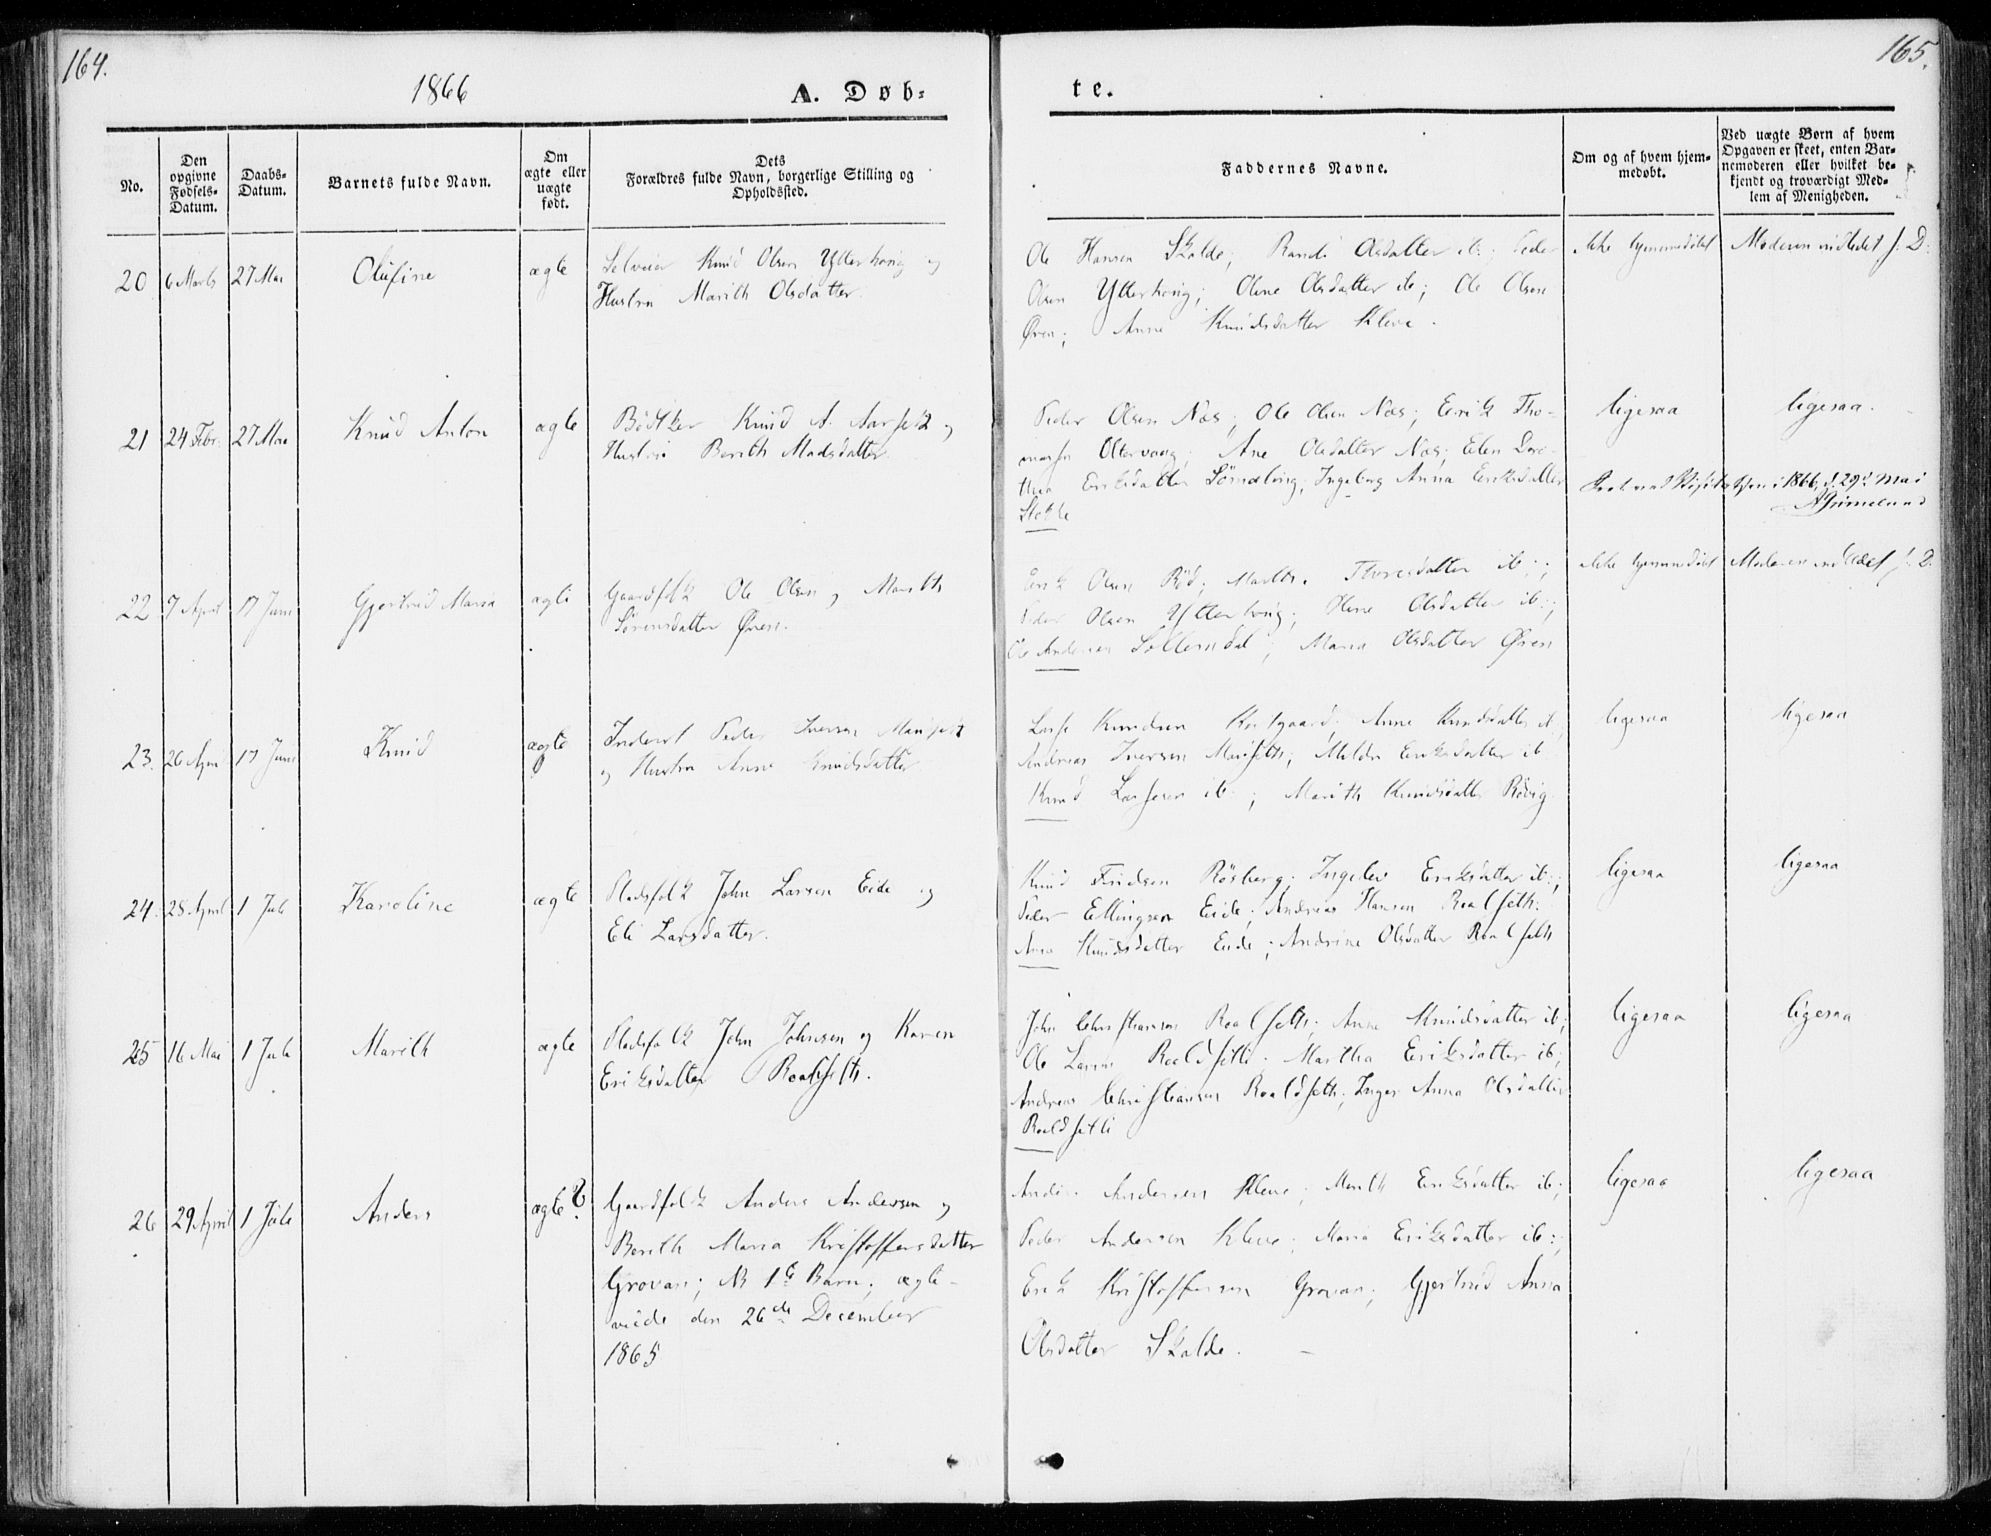 164.
165.
1866
A. Døb-
te.
No.
Den opgivne Fødsels-Datum.
Daabs-Datum.
Barnets fulde Navn.
Om ægte eller uægte født.
Dets Forældres fulde Navn, borgerlige Stilling og Opholdssted.
Faddernes Navne.
Om og af hvem hjemmedøbt.
Ved uægte Børn af hvem Opgaven er skeet, enten Barnemoderen eller hvilket bekjendt og troværdigt Medlem af Menigheden.
20 6 Marts 27 Mai Olufine ægte
Selveier Knud Olsen Ytterhovig og
Hustru Marith Olsdatter.
Ole Hansen Skalde; Randi Olsdatter ib.; Peder
Olsen Ytterhovig; Olene Olsdatter ib; Ole Olsen
Øren; Anne Knudsdatter Kleve.
ikke hjemmedøbt
Moderen indledet s. D.
21 24 Febr. 27 Mai Knud Anton ægte
Bødker Knud A. Aarseth og
Hustru Berith Madsdatter.
Peder Olsen Næs; Ole Olsen Næs; Erik Tho-
massen Oltervaag; Ane Olsdatter Næs; Elen Doro-
thea Eriksdatter; Ingeborg Anna Eriksdatter
Stokke
ligesaa
ligesaa.
1866, d. 29d Mai
22 7 April 17 Juni Gjertrud Maria ægte
Gaardfolk Ole Olsen og Marith
Sørensdatter Øren.
Erik Olsen Rød; Marith Thoresdatter ib.;
Peder Olsen Ytterhovig; Olene Olsdatter ib.;
Ole Andersen Sollemdal; Maria Olsdatter Øren
ikke hjemmedøbt
Moderen indledet s. D.
23. 26 April 17 Juni Knud ægte
Inderst Peder Iversen
og Hustru Anne Knudsdatter
Lasse Knudsen; Anne Knudsdatter ib;
Andreas Iversen; Eriksdatter ib
Knud Larssen ib.; Marith Knudsdatter Røvig
ligesaa
ligesaa
24. 28 April 1 Juli Karoline ægte
Pladsfolk John Larsen Eide og
Eli Larsdatter.
Knud Røsberg; Eriksdatter ib.;
Peder Ellingsen Eide; Andreas Hansen Roalseth:
Ane Knudsdatter Eide; Andrine Olsdatter Roalseth
ligesaa
ligesaa
25 16 Mai 1 Juli Marith ægte
Pladsfolk John Johnsen og Karen
Eriksdatter Roalseth.
John Christiansen Roalseth; Anne Knudsdatter ib;
Ole Larsen Roaldseth; Martha Eriksdatter ib;
Andreas Christiansen Roaldseth; Inger Anna Olsdatter
Roaldseth
ligesaa
ligesaa
26 29 April 1 Juli Anders ægte?
Gaardfolk Anders Andersen og
Berith Maria Kristoffersdatter
Grovan; NB 1te Barn; ægte-
viede den 26de December
1865
Anders Andersen Kleve; Marith Eriksdatter ib;
Peder Andersen Kleve; Maria Eriksdatter ib:;
Erik Kristoffersen Grovan; Gjertrud Anna
Olsdatter Skalde.
ligesaa
ligesaa